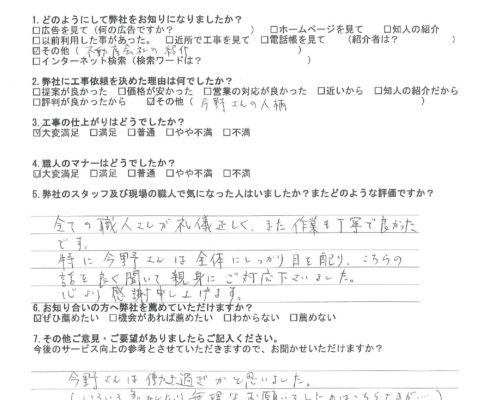 1. どのようにして弊社をお知りになりましたか?
□広告を見て(何の広告ですか? ) □ホームページを見て □知人の紹介
□以前利用した事があった。 □近所で工事を見て □電話帳を見て (紹介者は? )
☑その他( 不動産会社の紹介 )
□インターネット検索(検索ワードは? )
2. 弊社に工事依頼を決めた理由は何でしたか?
□提案が良かった □価格が安かった □営業の対応が良かった □近いから □知人の紹介だから
□評判が良かったから ☑その他( 今野さんの人柄 )
3. 工事の仕上がりはどうでしたか?
☑大変満足 □満足 □普通 □やや不満 □不満
4. 職人のマナーはどうでしたか?
☑大変満足 □満足 □普通 □やや不満 □不満
5. 弊社のスタッフ及び現場の職人で気になった人はいましたか?またどのような評価ですか?
全ての職人さんが礼儀正しく、また作業も丁寧で良かった
です。
特に今野さんは全体にしっかり目を配り、こちらの
話を良く聞いて親身にご対応下さいました。
心より感謝申し上げます。
6. お知り合いの方へ弊社を薦めていただけますか?
☑ぜひ薦めたい □機会があれば薦めたい □わからない □薦めない
7. その他ご意見・ご要望がありましたらご記入ください。
今後のサービス向上の参考とさせていただきますので、お聞かせいただけますか?
今野さんは働き過ぎかと思いました。